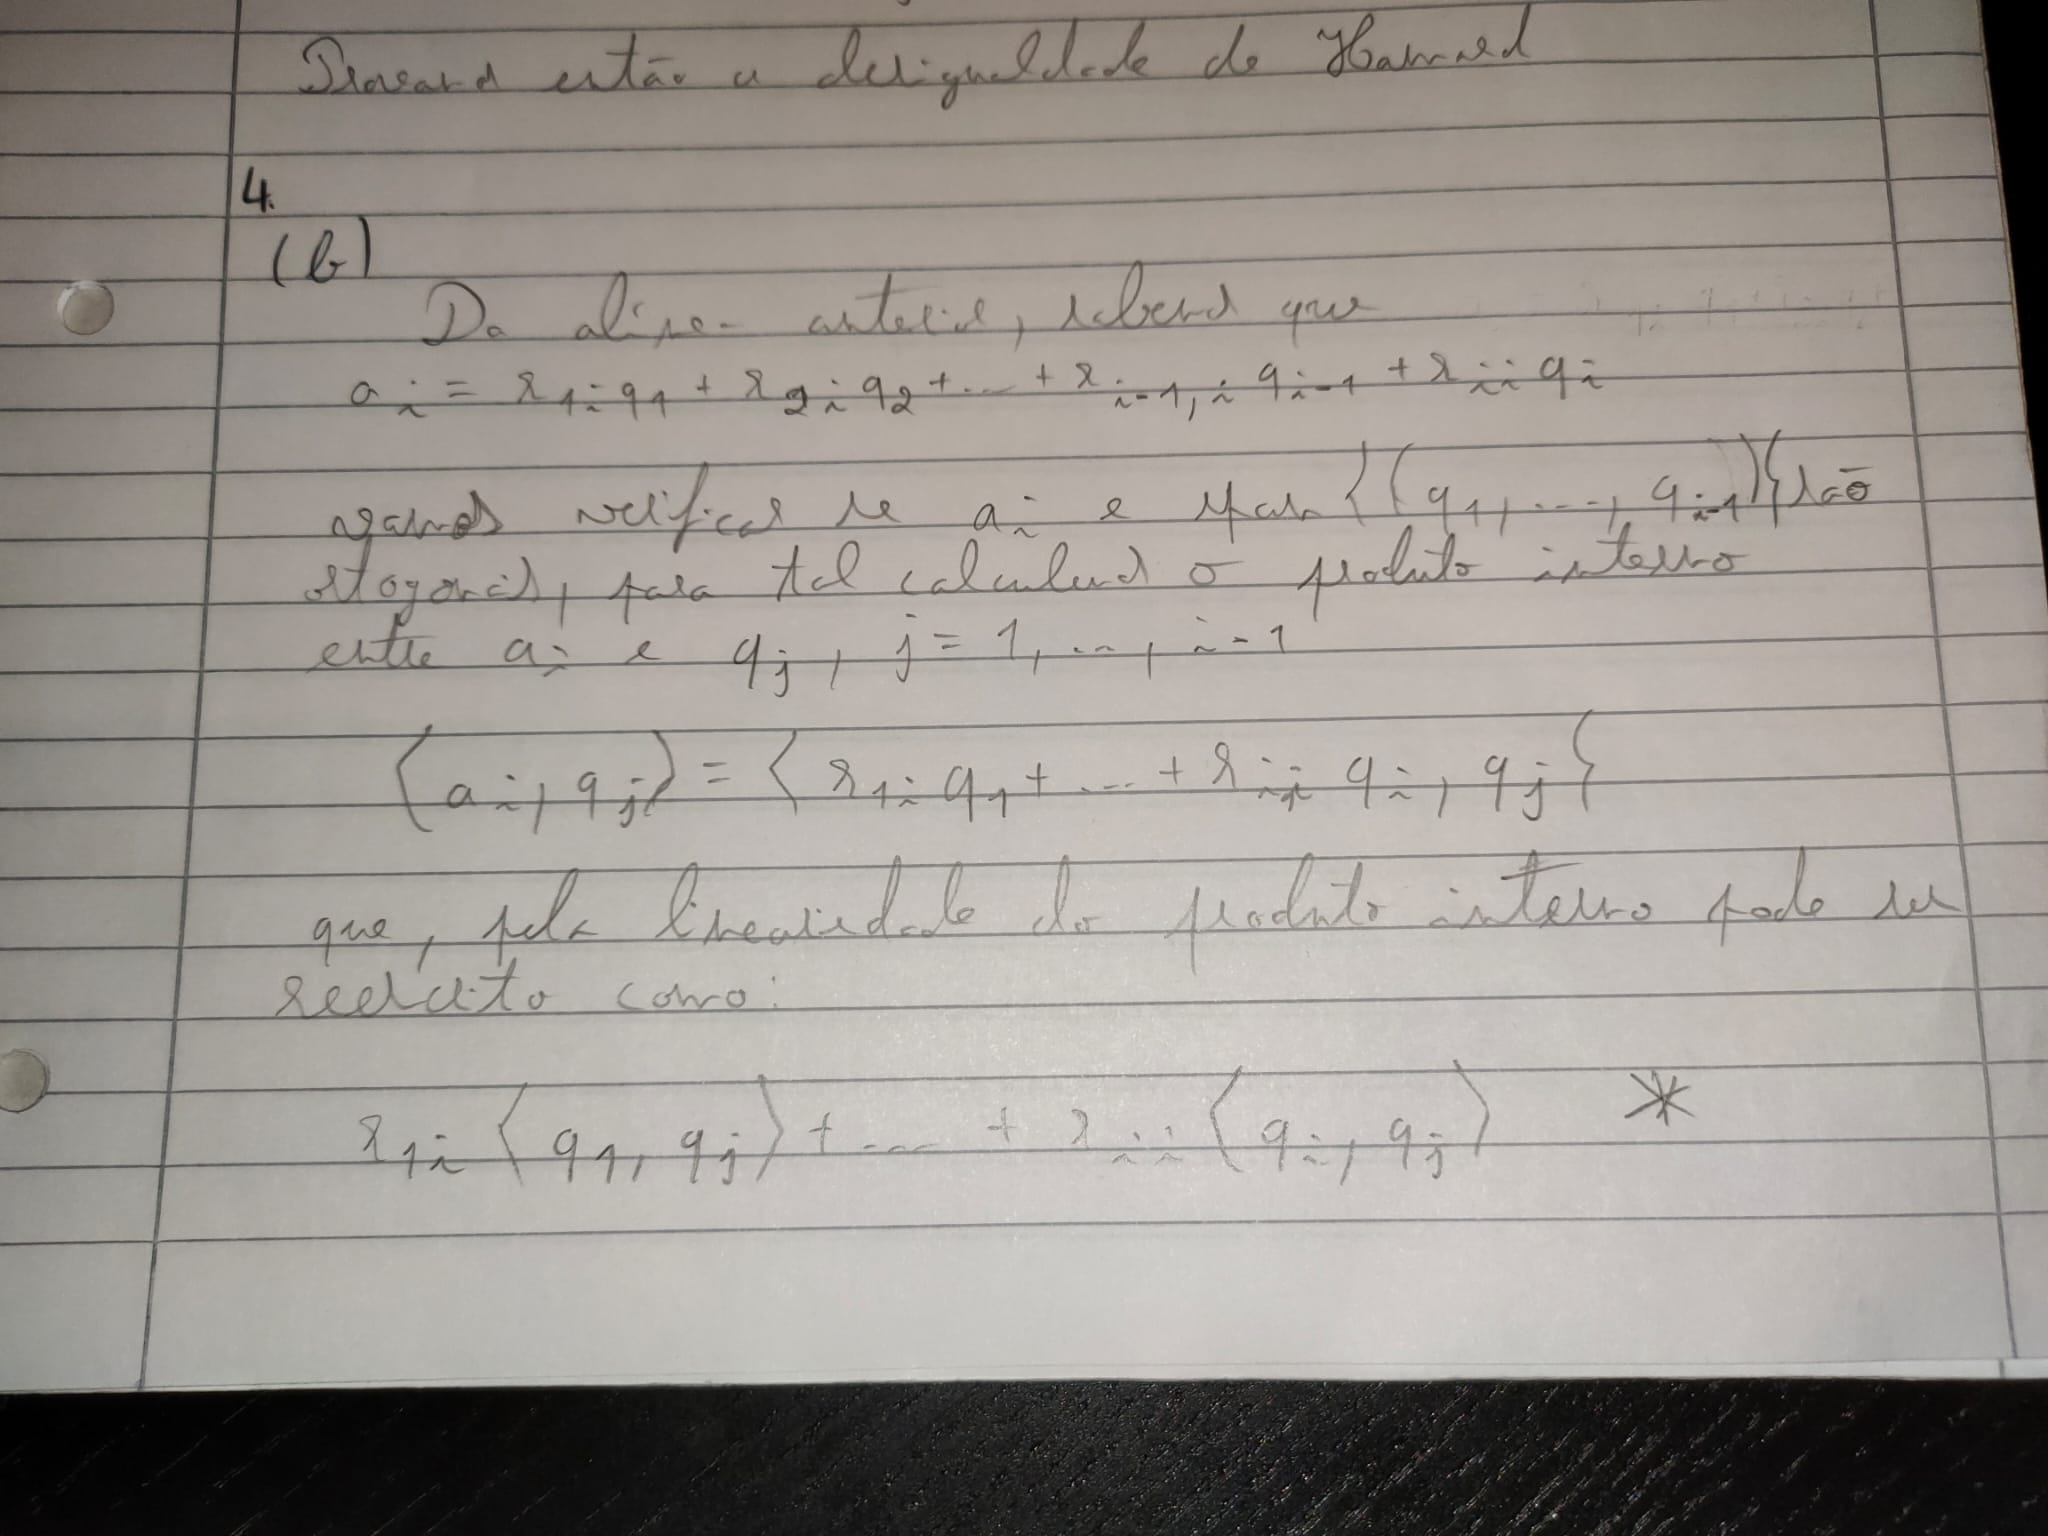 Provando então a desigualdade de Hadamard
4.
(b)
Da alínea anterior, sabendo que
a_i = r_{1i} q_1 + r_{2i} q_2 + ... + r_{i-1,i} q_{i-1} + r_{ii} q_i
vamos verificar se a_i e span {(q_1, ..., q_{i-1})} são
ortogonais, para tal calculando o produto interno
entre a_i e q_j, j = 1, ..., i-1
⟨a_i, q_j⟩ = ⟨r_{1i} q_1 + ... + r_{ii} q_i, q_j⟩
que, pela linearidade do produto interno pode ser
reescrito como:
r_{1i} ⟨q_1, q_j⟩ + ... + r_{ii} ⟨q_i, q_j⟩ *